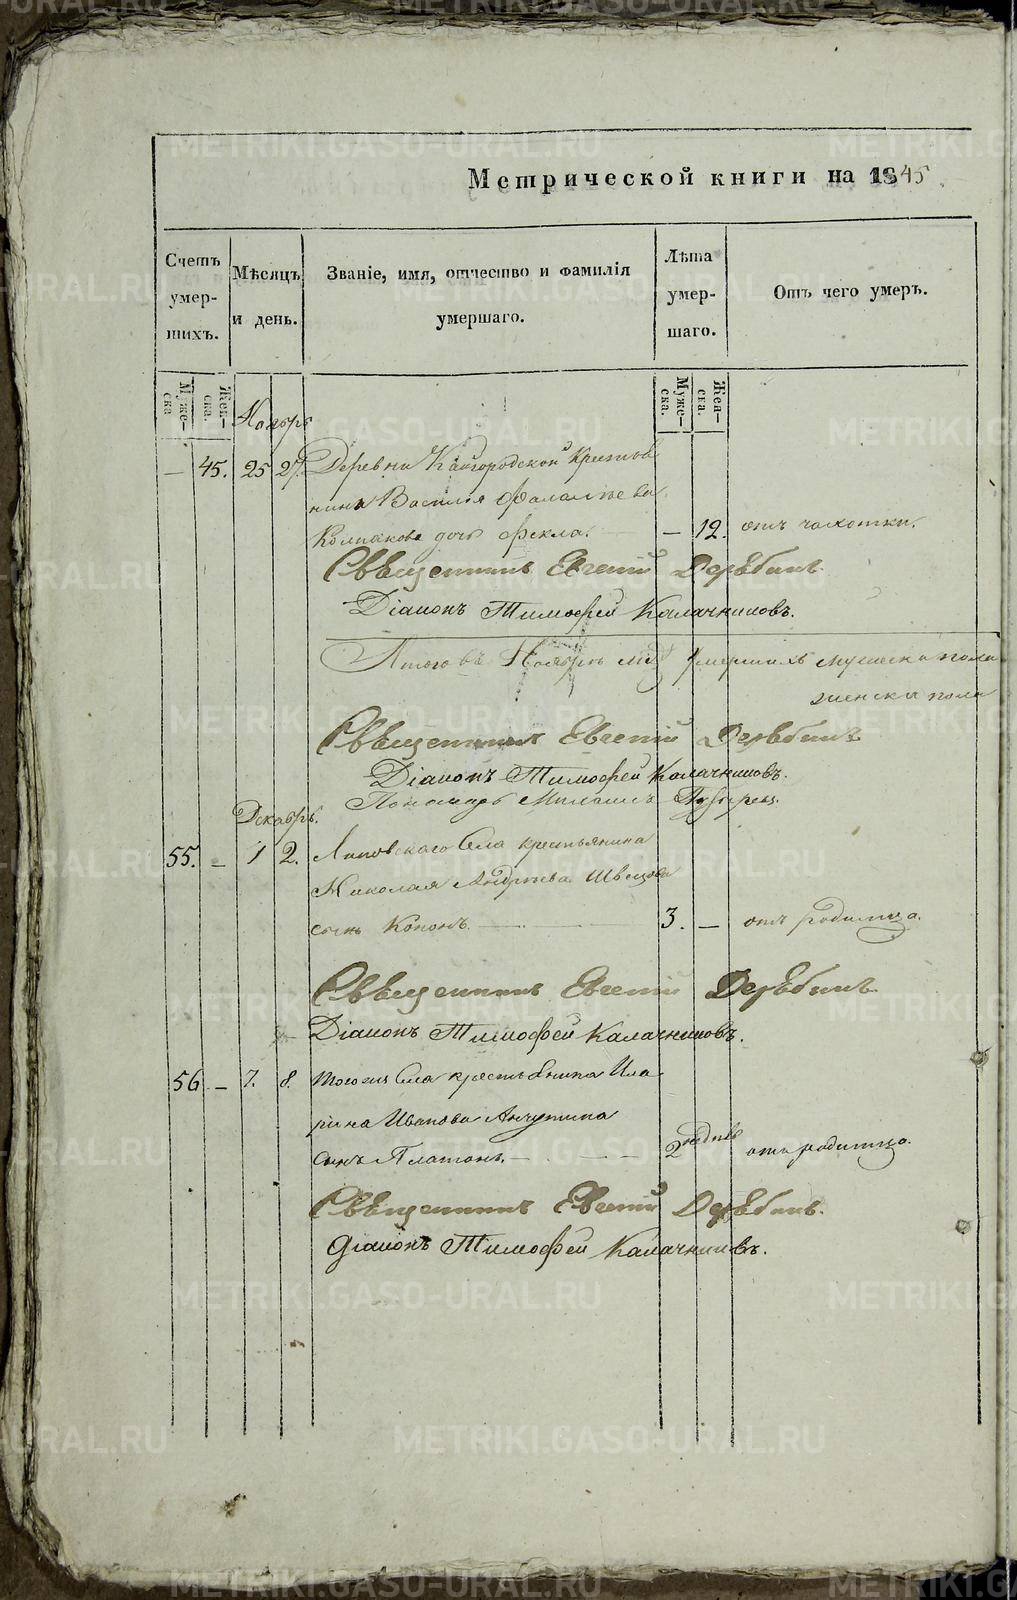 Метрической книги на 1845
Счетъ умер-шихъ.
Мѣсяцъ и день.
Званіе, имя, отчество и фамилія умершаго.
Лѣта умер-шаго.
Отъ чего умеръ.
Муже-ска
Жен-ска.
Муже-ска.
Жен-ска.
Ноябрь
— 45. 25 27. Деревни Кайгородской Крестья
нина Василія
Колпакова дочь Фекла. — 12. отъ чахотки.
Священникъ Евгеній Дерябинъ.
Діаконъ Тимофей Калачниковъ.
Итого въ Ноябрѣ умершихъ мужеска пола
женска пола
Священникъ Евгеній Дерябинъ
Діаконъ Тимофей Калачниковъ.
Пономарь Михаилъ
Декабрь.
55. — 1 2. Липовскаго Села крестьянина
Николая Андреева Швецова
сынъ Кононъ. — 3. — отъ родимца.
Священникъ Евгеній Дерябинъ
Діаконъ Тимофей Калачниковъ.
56 — 7. 8. тогожъ Села крестьянина Ила
ріона Иванова Анчутина
сынъ Платонъ. — 2 отъ родимца.
Священникъ Евгеній Дерябинъ.
Діаконъ Тимофей Калачниковъ.
METRIKI.GASO-URAL.RU